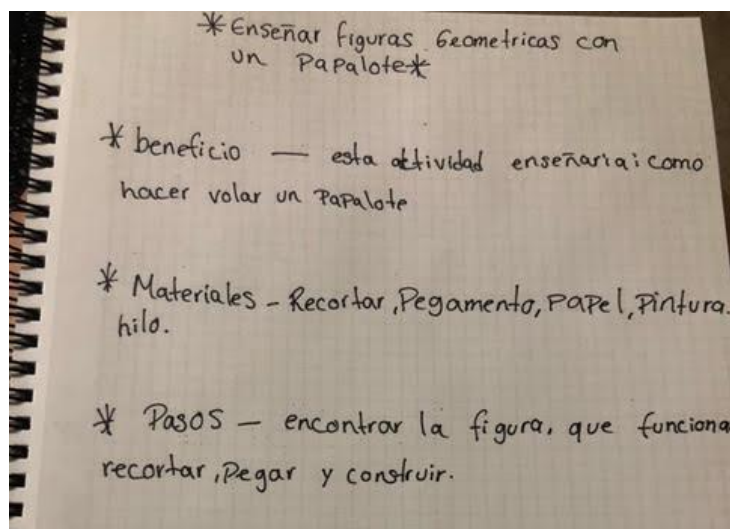 *Enseñar figuras Geometricas con
un Papalote*
* beneficio — esta actividad enseñaria: como
hacer volar un Papalote
* Materiales - Recortar, Pegamento, Papel, Pintura.
hilo.
* Pasos — encontrar la figura, que funciona
recortar, Pegar y construir.